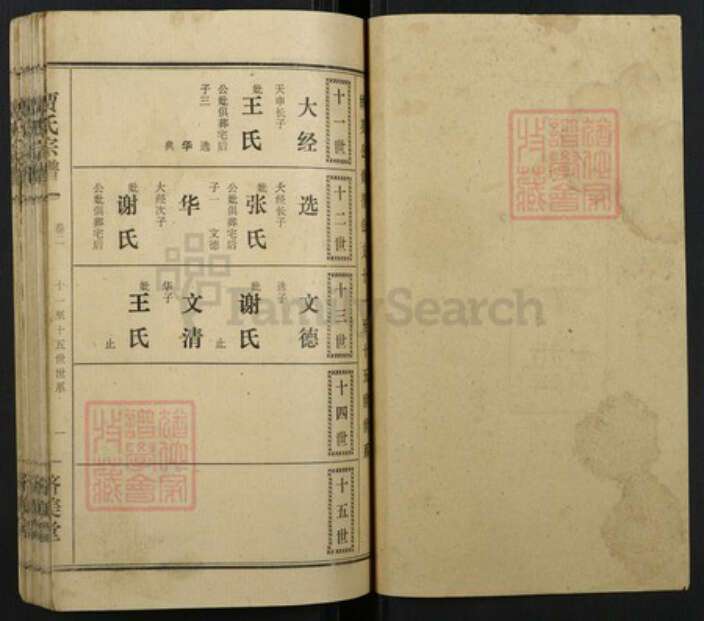 十一世
大经
天申长子
妣王氏
公妣俱葬宅后
子三
选
华
典
十二世
选
大经长子
妣张氏
公妣俱葬宅后
子一 文德
华
大经次子
妣谢氏
公妣俱葬宅后
十三世
文德
选子
妣谢氏
止
文清
华子
妣王氏
止
十四世
十五世
贾氏宗谱
卷二
十一至十五世世系
一
FamilySearch